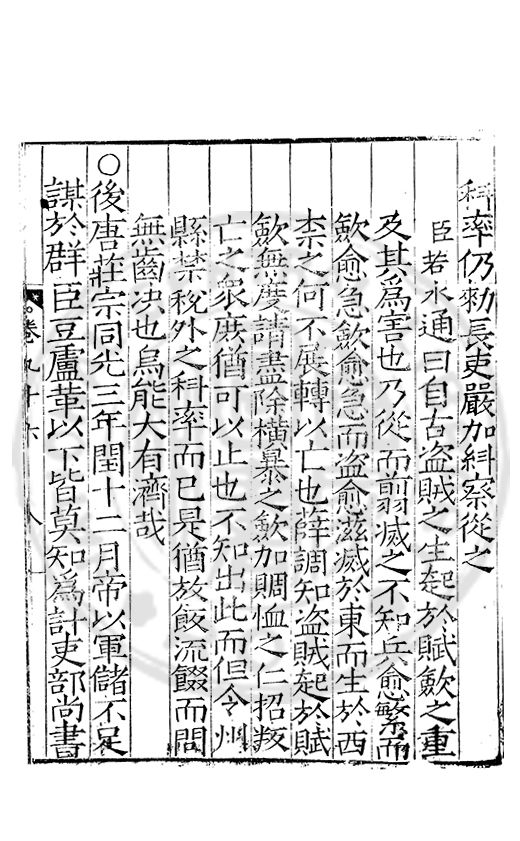 科率仍勑長吏嚴加糾察從之
臣若水通曰自古盗賊之生起於賦歛之重
及其爲害也乃從而翦滅之不知兵愈繁而
歛愈急歛愈急而盗愈滋滅於東而生於西
柰之何不展轉以亡也薛調知盗賊起於賦
歛無度請盡除横暴之歛加賙恤之仁招叛
亡之衆庶猶可以止也不知出此而但令州
縣禁稅外之科率而已是猶放飯流歠而問
無齒决也烏能大有濟哉
○後唐莊宗同光三年閏十二月帝以軍儲不足
謀於群臣豆盧革以下皆莫知爲計吏部尚書
卷九十六
八